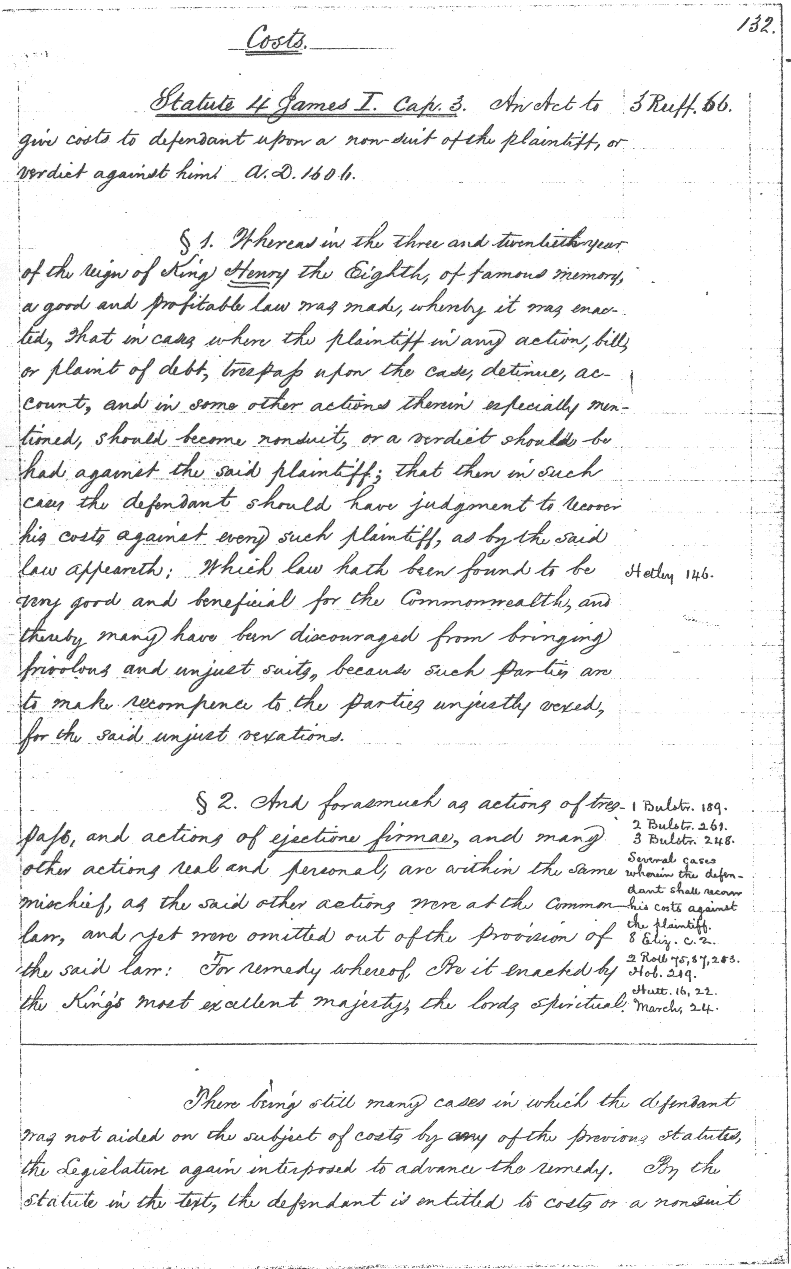 132.
Costs.
Statute 4 James I. Cap. 3. An Act to
3 Ruff. 66.
give costs to defendant upon a non-suit of the plaintiff, or
verdict against him. A.D. 1606.
§ 1. Whereas in the three and twentieth year
of the reign of King Henry the Eighth, of famous memory,
a good and profitable law was made, whereby it was enac-
ted, that in cases where the plaintiff in any action, bill,
or plaint of debt, trespass upon the case, detinue, ac-
count, and in some other actions therein especially men-
tioned, should become nonsuit, or a verdict should be
had against the said plaintiff; that then in such
cases the defendant should have judgment to recover
his costs against every such plaintiff, as by the said
law appeareth: Which law hath been found to be
Hetley 146.
very good and beneficial for the Commonwealth, and
thereby many have been discouraged from bringing
frivolous and unjust suits, because such parties are
to make recompence to the parties unjustly vexed,
for the said unjust vexations.
§ 2. And forasmuch as actions of tres-
pass, and actions of ejectione firmae, and many
other actions real and personal, are within the same
mischief, as the said other actions were at the Common-
law, and yet were omitted out of the provision of
the said law: For remedy whereof, Be it enacted by
the King's most excellent majesty, the lords spiritual
1 Bulstr. 189.
2 Bulstr. 261.
3 Bulstr. 248.
Several cases
wherein the defen-
dant shall recover
his costs against
the plaintiff.
8 Eliz. c. 2.
2 Roll 75, 87, 283.
Hob. 219.
Hutt. 16, 22.
March, 24.
There being still many cases in which the defendant
was not aided on the subject of costs by any of the previous statutes,
the Legislature again interposed to advance the remedy. By the
statute in the text, the defendant is entitled to costs or a nonsuit